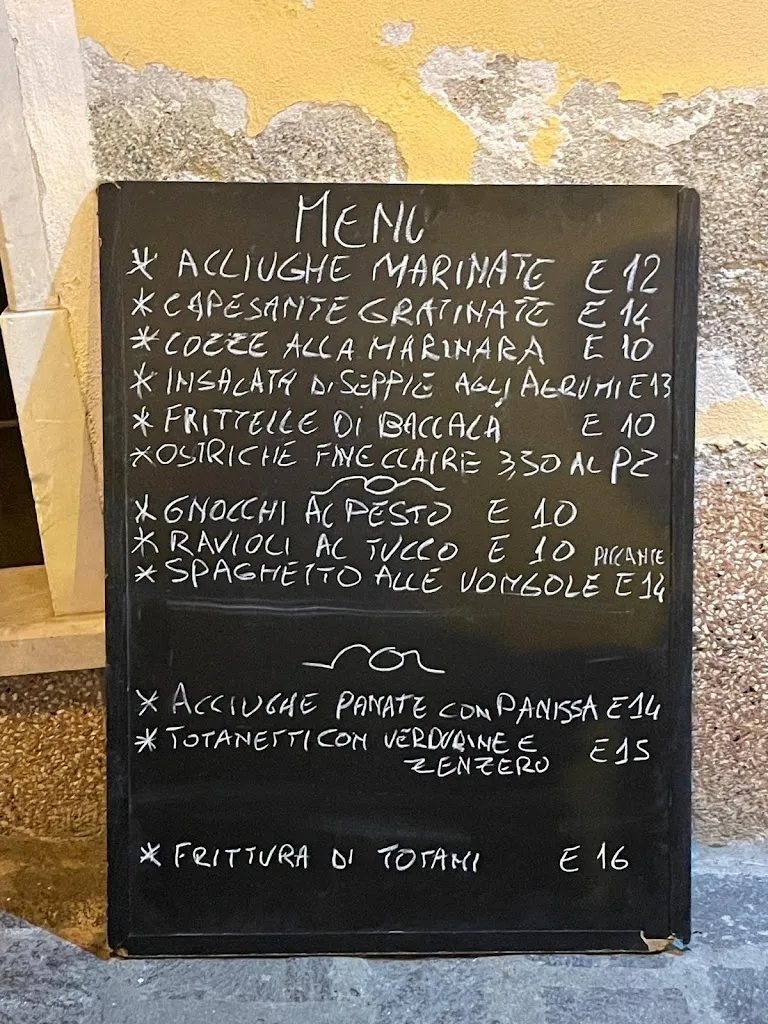 MENU
* ACCIUGHE MARINATE E 12
* CAPESANTE GRATINATE E 14
* COZZE ALLA MARINARA E 10
* INSALATA DI SEPPIE AGLI AGRUMI E 13
* FRITTELLE DI BACCALÀ E 10
* OSTRICHE FINE CLAIRE 3,50 AL PZ
* GNOCCHI AL PESTO E 10
* RAVIOLI AL TUCCO E 10 PICCANTE
* SPAGHETTO ALLE VONGOLE E 14
* ACCIUGHE PANATE CON PANISSA E 14
* TOTANETTI CON VERDURINE E E 15
ZENZERO
* FRITTURA DI TOTANI E 16